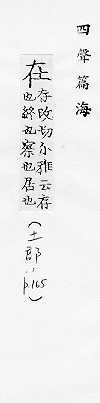 四聲篇海
在存改切尔雅云存
也終也察也居也
(土部 p.165)